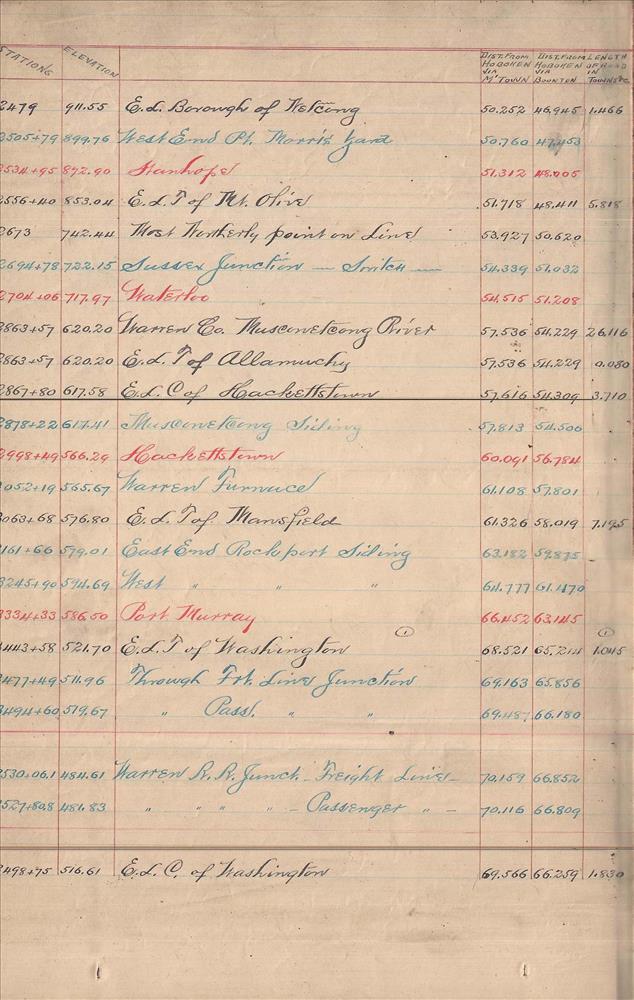 STATIONS ELEVATION DIST. FROM HOBOKEN VIA M'TOWN DIST. FROM HOBOKEN VIA BOONTON LENGTH OF ROAD IN TOWNS &C
2479 911.55 E.L. Borough of Netcong 50.252 46.945 1.466
2505+79 899.76 West End Pt. Morris Yard 50.760 47.453
2534+95 872.90 Stanhope 51.312 48.005
2556+40 853.04 E.L.T of Mt. Olive 51.718 48.411 5.818
2673 742.44 Most Northerly point on Line 53.927 50.620
2694+78 722.15 Sussex Junction — Switch —
54.339 51.032
2704+06 717.97 Waterloo 54.515 51.208
2863+57 620.20 Warren Co. Musconetcong River 57.536 54.229 26.116
2863+57 620.20 E.L.T of Allamuchy 57.536 54.229 0.080
2867+80 617.58 E.L.C of Hackettstown 57.616 54.309 3.710
2878+22 617.41 Musconetcong Siding 57.813 54.506
2998+49 566.29 Hackettstown 60.091 56.784
3052+19 565.67 Warren Furnace 61.108 57.801
3063+68 576.80 E.L.T of Mansfield 61.326 58.019 7.195
3161+66 579.01 East End Rockport Siding 63.182 59.875
3245+90 594.69 West " " " 64.777 61.470
3334+33 586.50 Port Murray 66.452 63.145
3443+58 521.70 E.L.T of Washington ① 68.521 65.214 ① 1.045
3477+49 511.96 Through Frt. Line Junction 69.163 65.856
3494+60 519.67 " Pass. " " 69.487 66.180
3530+06.1 484.61 Warren R.R. Junct. - Freight Line - 70.159 66.852
3527+80.8 481.83 " " " " - Passenger " - 70.116 66.809
3498+75 516.61 E.L.C. of Washington 69.566 66.259 1.830